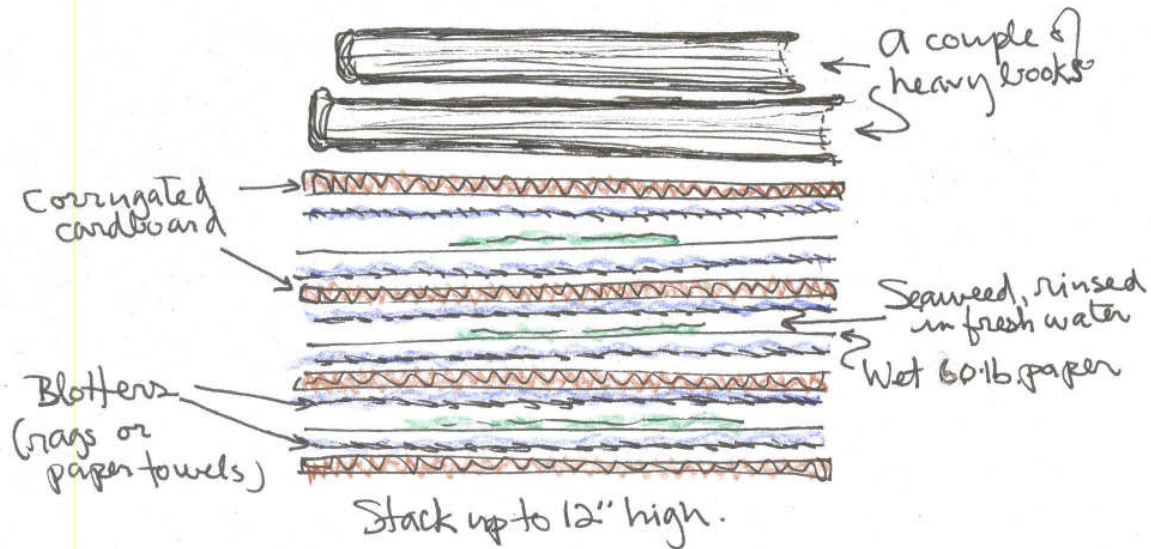 a couple of
heavy books
Corrugated
cardboard
Seaweed, rinsed
in fresh water
Wet 60 lb. paper
Blotters
(rags or
paper towels)
Stack up to 12" high.